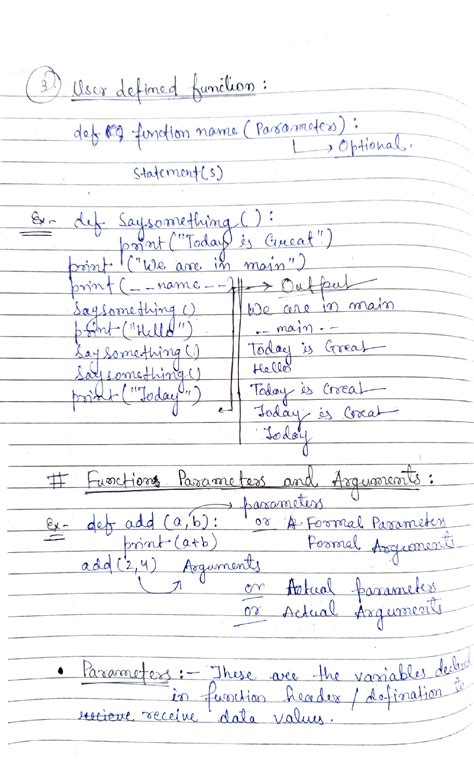 3) User defined function :
def function name (Parameters) :
→ Optional.
Statement(s)
Ex- def Saysomething ( ) :
print ("Today is Great")
print ("We are in main")
print (--name--) → Output
Saysomething ( ) We are in main
print ("Hello") --main--
Saysomething ( ) Today is Great
Saysomething ( ) Hello
print ("Today") Today is Great
Today is Great
Today
# Functions Parameters and Arguments :
→ parameters
Ex- def add (a, b) : or Formal Parameters
print (a+b) Formal Arguments
add (2, 4) Arguments
or Actual parameters
or Actual Arguments
• Parameters :- These are the variables declared
in function header / defination to
recieve receive data values.